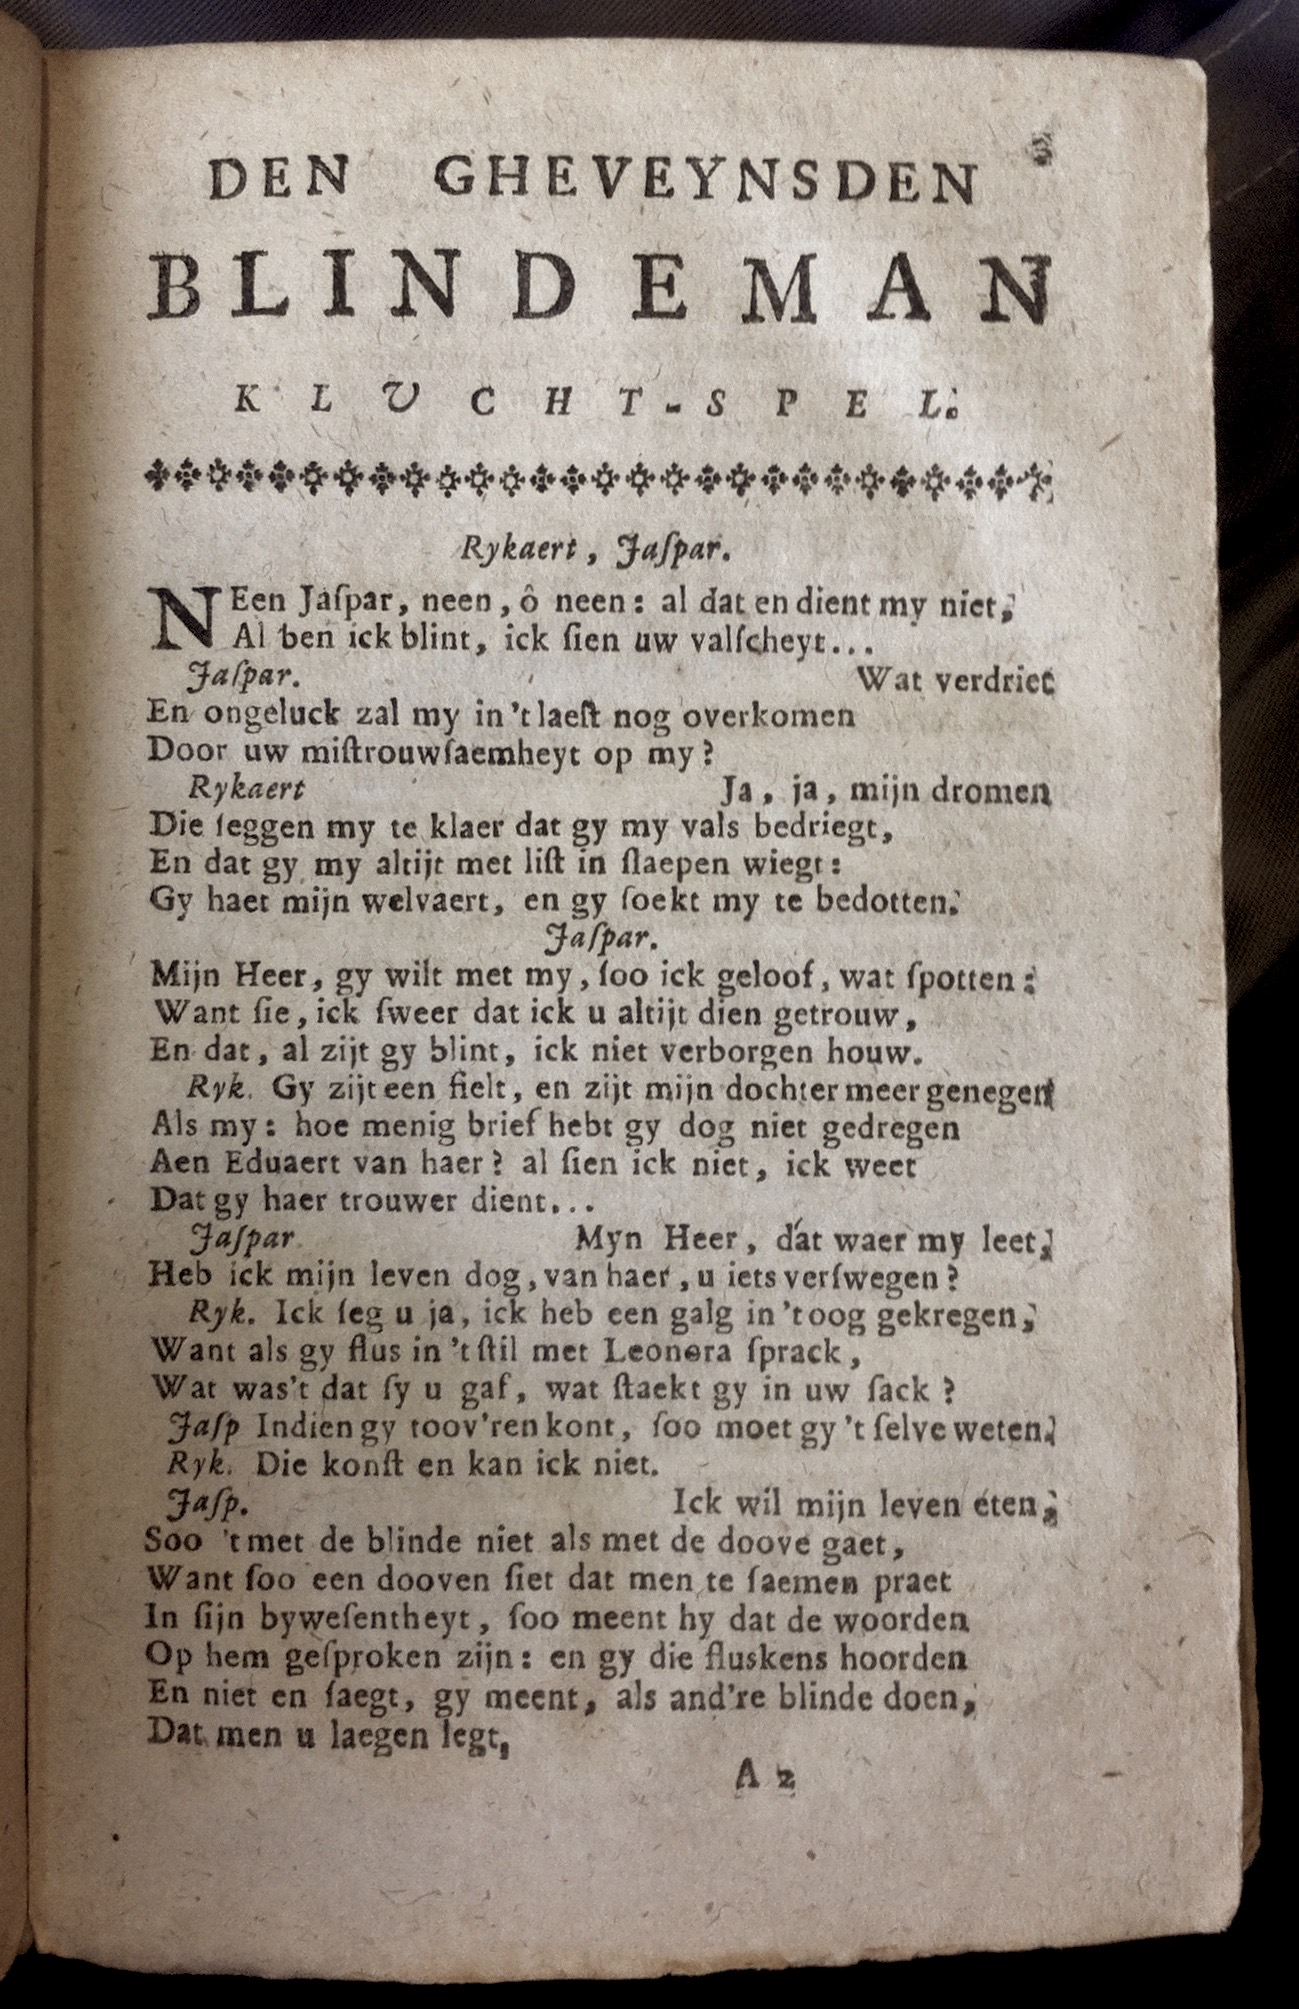 3
DEN GHEVEYNSDEN
BLINDEMAN
KLUCHT-SPEL.
Rykaert, Jaſpar.
NEen Jaſpar, neen, ô neen: al dat en dient my niet,
Al ben ick blint, ick ſien uw valſcheyt...
Jaſpar. Wat verdriet
En ongeluck zal my in 't laeſt nog overkomen
Door uw miſtrouwſaemheyt op my?
Rykaert Ja, ja, mijn dromen
Die ſeggen my te klaer dat gy my vals bedriegt,
En dat gy my altijt met liſt in ſlaepen wiegt:
Gy haet mijn welvaert, en gy ſoekt my te bedotten.
Jaſpar.
Mijn Heer, gy wilt met my, ſoo ick geloof, wat ſpotten:
Want ſie, ick ſweer dat ick u altijt dien getrouw,
En dat, al zijt gy blint, ick niet verborgen houw.
Ryk. Gy zijt een fielt, en zijt mijn dochter meer genegen
Als my: hoe menig brief hebt gy dog niet gedregen
Aen Eduaert van haer? al ſien ick niet, ick weet
Dat gy haer trouwer dient...
Jaſpar Myn Heer, dát waer my leet,
Heb ick mijn leven dog, van haer, u iets verſwegen?
Ryk. Ick ſeg u ja, ick heb een galg in 't oog gekregen,
Want als gy flus in 't ſtil met Leonora ſprack,
Wat was't dat ſy u gaf, wat ſtaekt gy in uw ſack?
Jaſp Indien gy toov'ren kont, ſoo moet gy 't ſelve weten.
Ryk. Die konſt en kan ick niet.
Jaſp. Ick wil mijn leven eten,
Soo 't met de blinde niet als met de doove gaet,
Want ſoo een dooven ſiet dat men te ſaemen praet
In ſijn byweſentheyt, ſoo meent hy dat de woorden
Op hem geſproken zijn: en gy die fluskens hoorden
En niet en ſaegt, gy meent, als and're blinde doen,
Dat men u laegen legt,
A 2